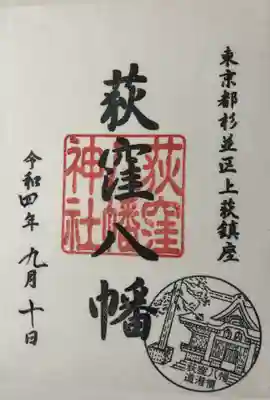 東京都杉並区上荻鎮座
荻窪八幡
荻窪
八幡
神社
令和四年 九月 十日
荻窪八幡
道灌槇